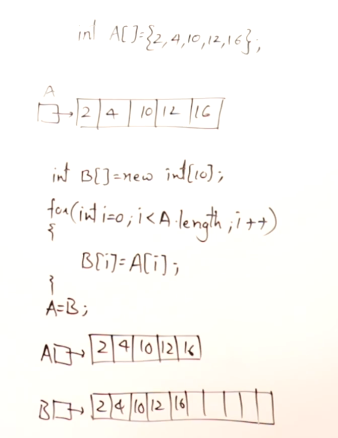 int A[]={2,4,10,12,16};
A
2 4 10 12 16
int B[]=new int[10];
for(int i=0;i<A.length;i++)
{
B[i]=A[i];
}
A=B;
A 2 4 10 12 16
B 2 4 10 12 16